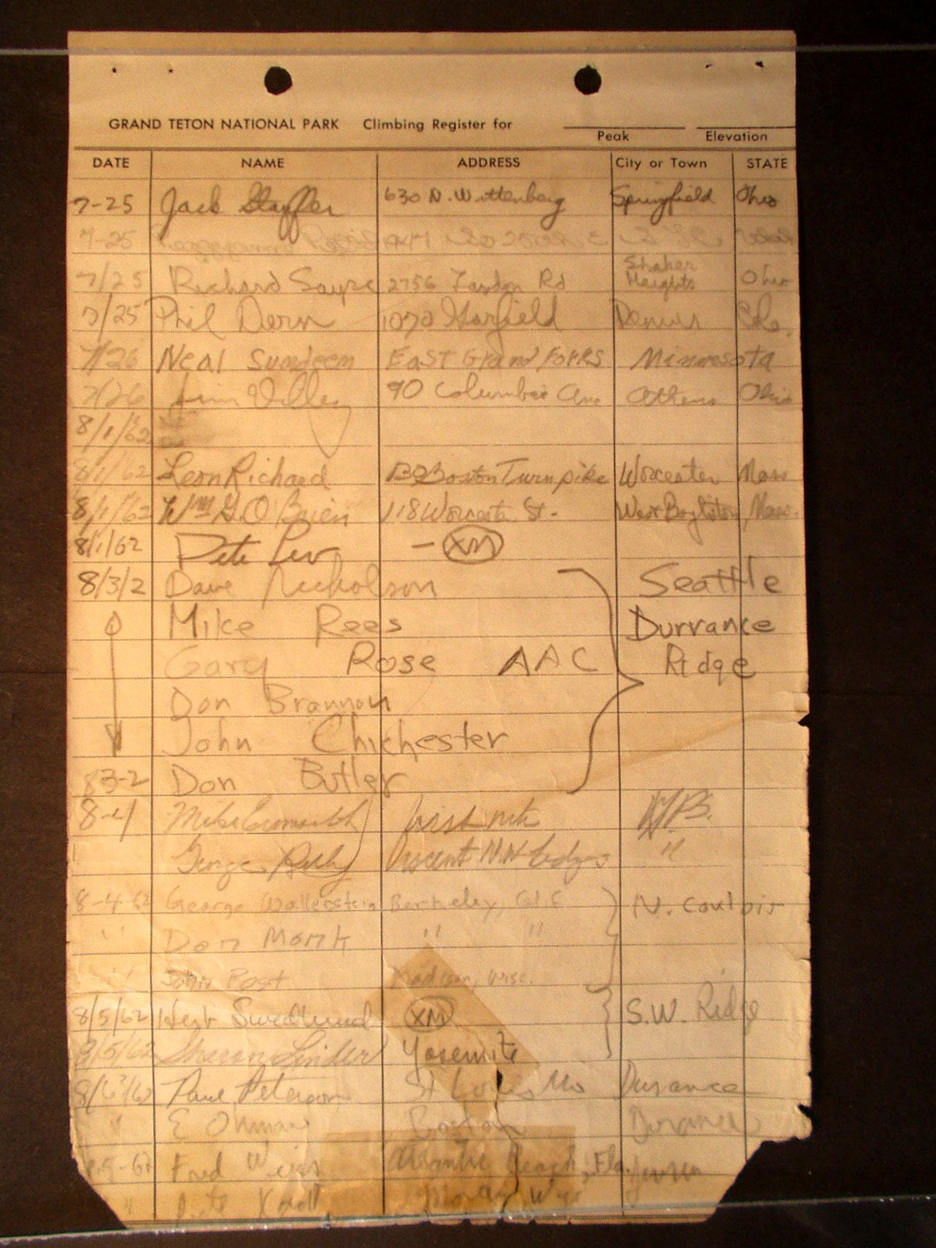 GRAND TETON NATIONAL PARK Climbing Register for
Peak Elevation
DATE NAME ADDRESS City or Town STATE
7-25 Jack 630 N. Wittenberg Springfield Ohio
7-25
7/25 Richard 2756 Rd Shaker Heights Ohio
7/25 Phil Dern 1070 Garfield Denver Colo.
7/26 Neal Sundeen East Grand Forks Minnesota
7/26 Jim 90 Columbia Ave Athens Ohio
8/1/62
8/1/62 Leon Richard Boston Turnpike Worcester Mass
8/1/62 Wm G. O'Brien 118 Worcester St. West Boylston, Mass.
8/1/62 Pete Lev - XM
8/3/2 Dave Nicholson Seattle
Mike Rees Durrance
Gary Rose AAC Ridge
Don Brannon
John Chichester
83-2 Don Butler
8-4 Mike first
George Ascent N.W. Ledges "
8-4-62 George Wallerstein Berkeley, Calif N. Couloir
" Don Monk " "
" John Post Madison, Wisc.
8/5/62 Herb Swedlund XM S.W. Ridge
8/5/62 Yosemite
Paul Peterson St Louis Mo Durance
" E Ohman Boston Durance
Fred Atlantic Beach, Fla.